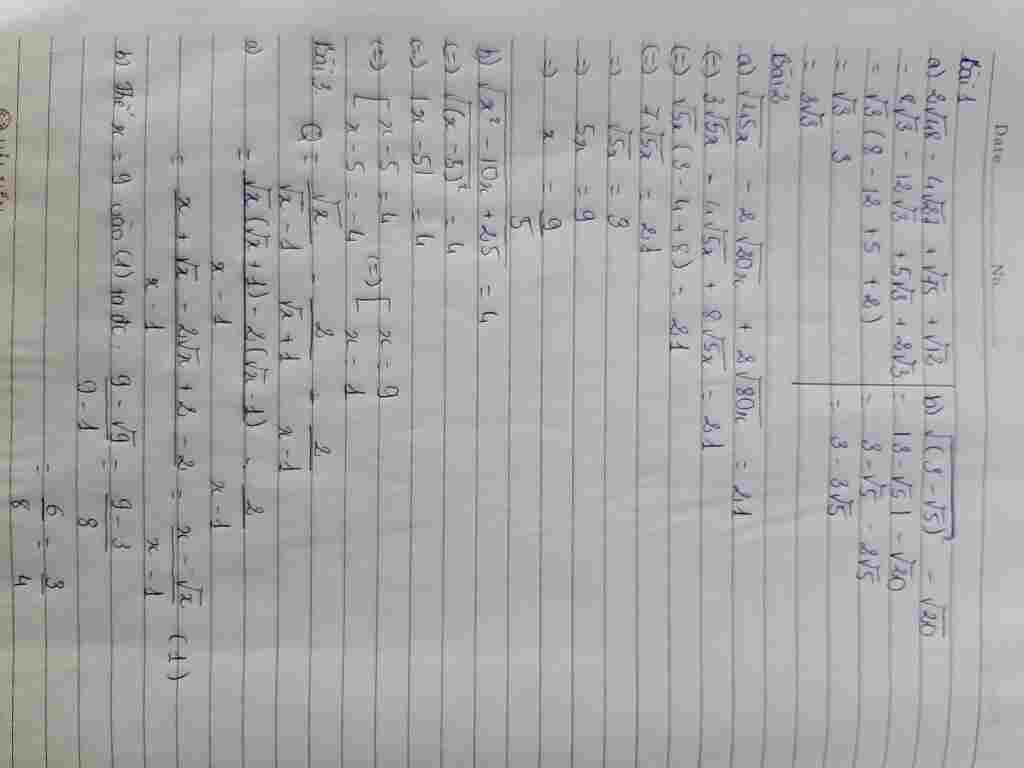 Date No
Bài 1
a) 2√48 - 4√27 + √75 + √12
= 8√3 - 12√3 + 5√3 + 2√3
= √3 (8 - 12 + 5 + 2)
= √3 . 3
= 3√3
b) √(3 - √5)² - √20
= |3 - √5| - √20
= 3 - √5 - 2√5
= 3 - 3√5
Bài 2
a) √45x - 2√20x + 2√80x = 21
(=) 3√5x - 4√5x + 8√5x = 21
(=) √5x (3 - 4 + 8) = 21
(=) 7√5x = 21
=) √5x = 3
=) 5x = 9
=) x = 9/5
b) √x² - 10x + 25 = 4
(=) √(x - 5)² = 4
(=) |x - 5| = 4
(=) [ x - 5 = 4 (=) [ x = 9
x - 5 = -4 x = 1
Bài 3
a) C = √x/√x - 1 - 2/√x + 1 - 2/x - 1
= √x(√x + 1) - 2(√x - 1)/x - 1 - 2/x - 1
= x + √x - 2√x + 2 - 2/x - 1 = x - √x/x - 1 (1)
b) Thế x = 9 vào (1) ta đc. 9 - √9/9 - 1 = 9 - 3/8
= 6/8 = 3/4